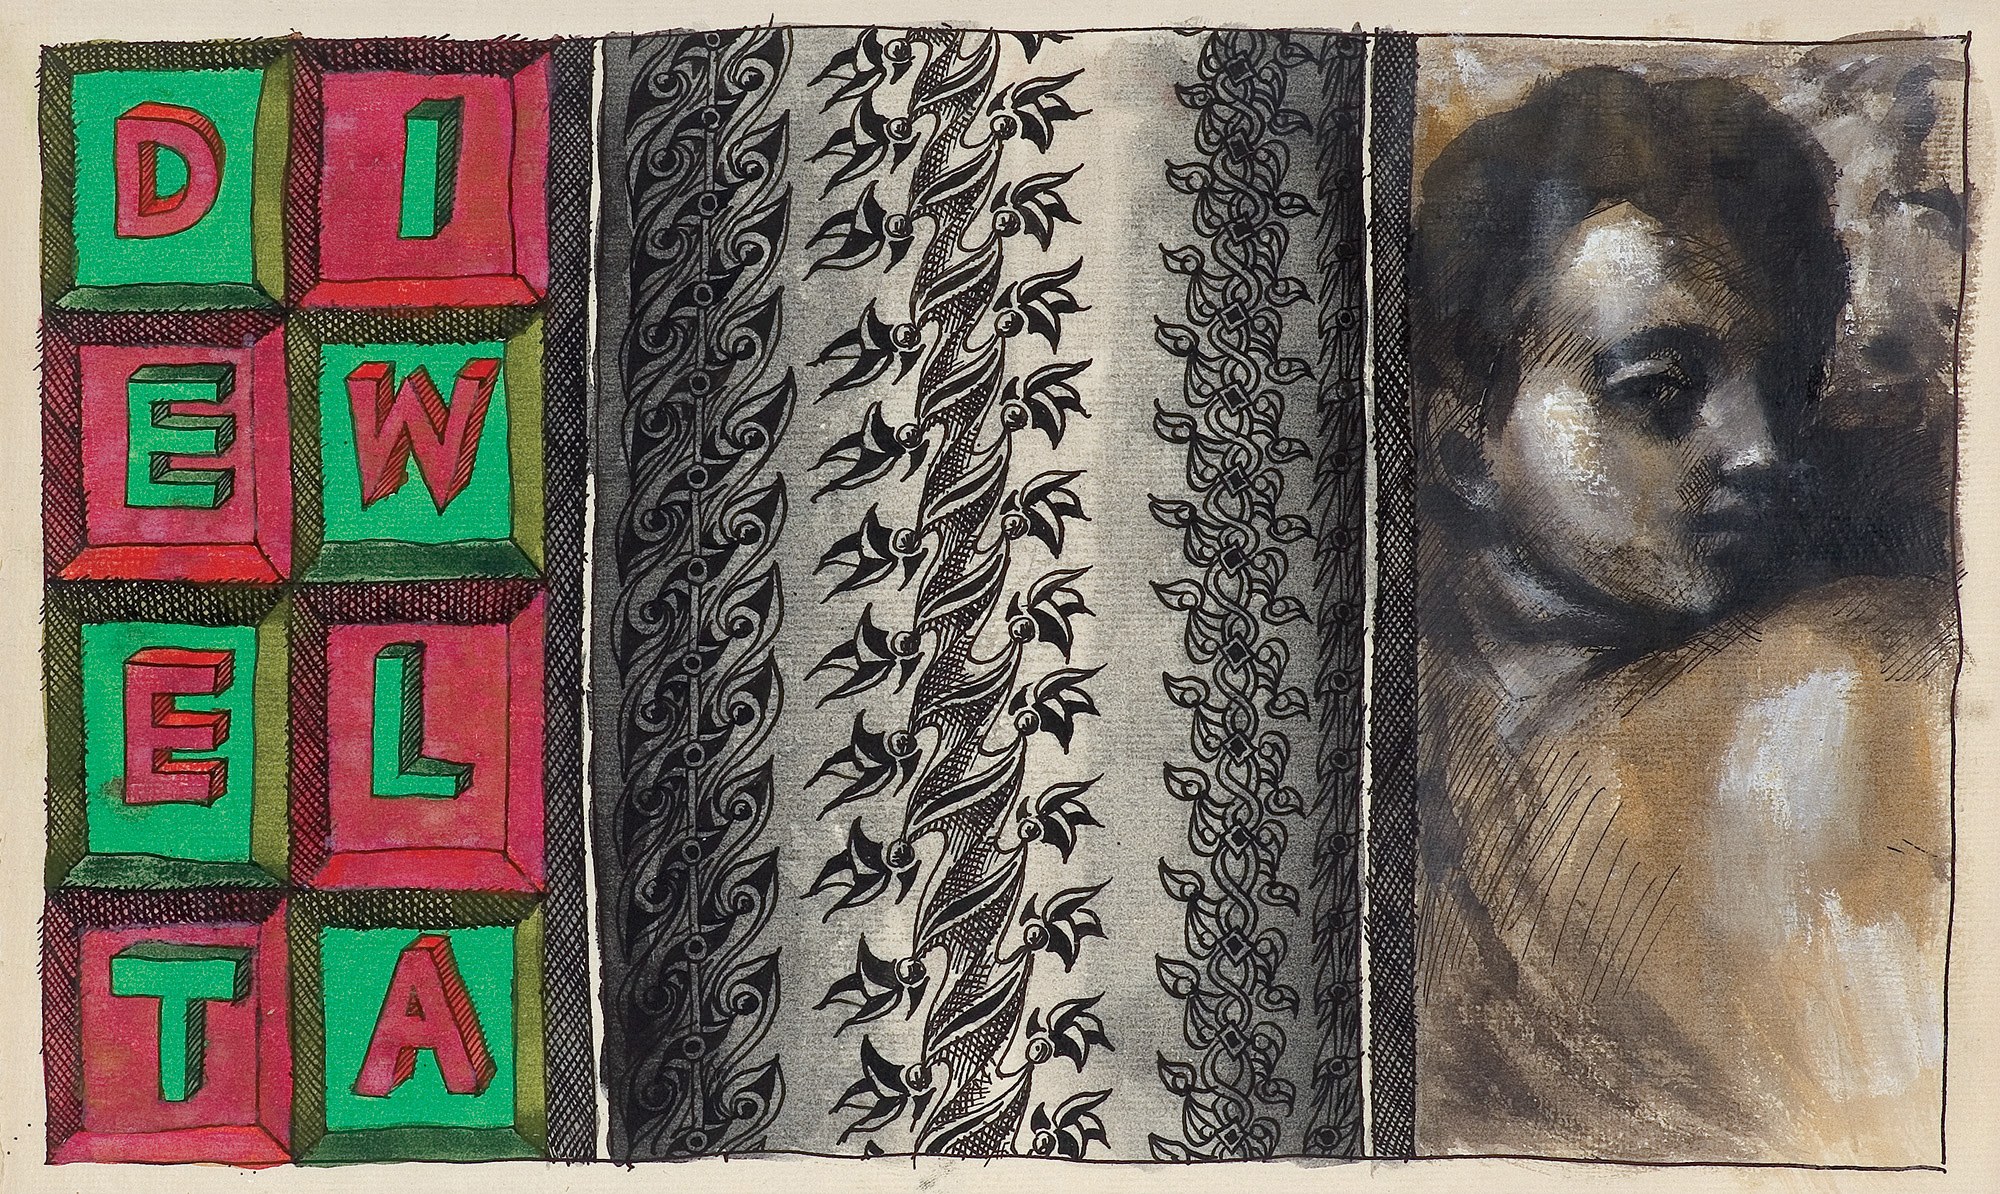 DI
EW
EL
TA